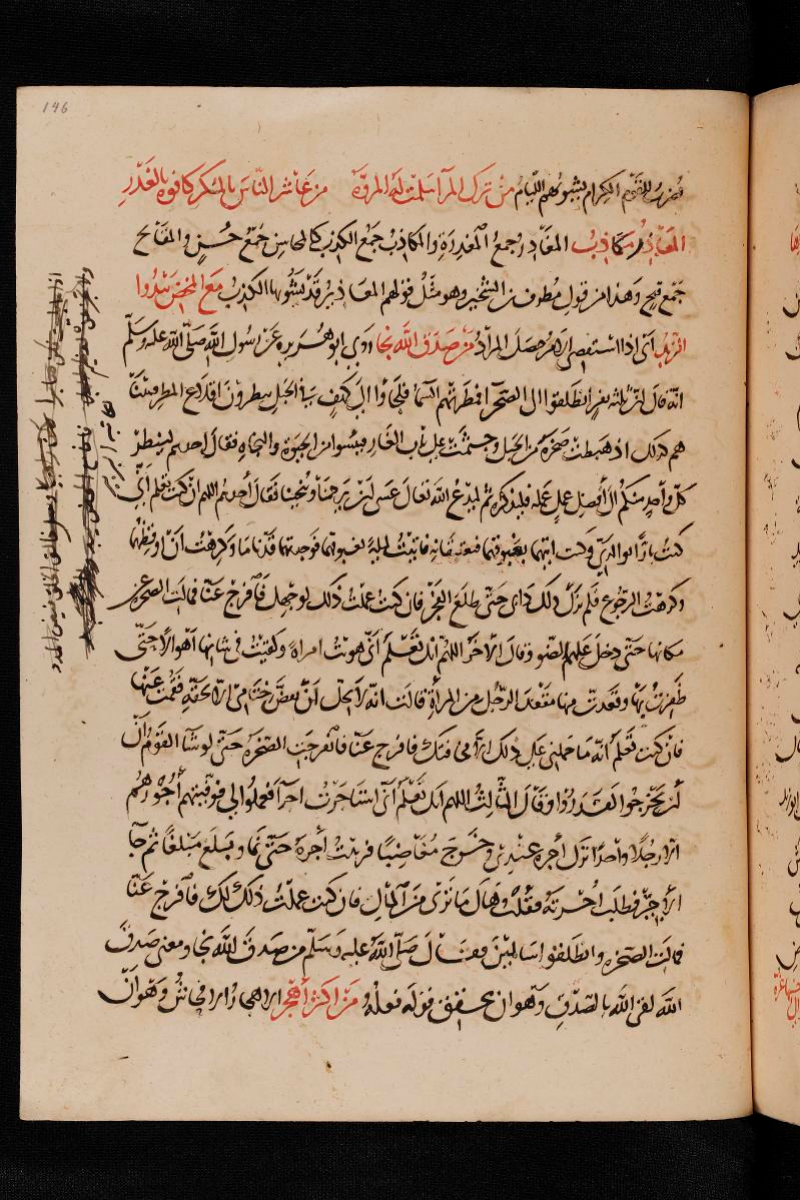 146
يضرب للقوم الكرام يشبوبهم اللئام من ترك المرآ سلمت له المروة من عاشر الناس بالمكر كافوه بالغدر
المعاذير مكاذب المعاذر جمع المعذرة والمكاذب جمع الكذب كالمحاسن جمع حسن والمقابح
جمع قبح وهذا من قول مطرف بن الشخير وهو مثل قولهم المعاذير قد يشوبها الكذب مع المخض يبدوا
الزبد اى اذا استقصى الامر حصل المراد من صدق الله نجا روى ابو هريره عن رسول الله صلى الله عليه وسلم
انه قال ان ثلثة نفر انطلقوا الى الصحرآ فمطرتهم السمآ فلجاوا الى كهف فى الجبل ينظرون اقلاع المطر فبينا
هم كذلك اذ هبطت صخرة من الجبل وجثمت على باب الغار فيئسوا من الحيوة والنجاة فقال احدهم لينظر
كل واحد منكم الى افضل عمل عمله فليذكره ثم ليدع الله تعالى عسى ان يرحمنا وينجينا فقال احدهم اللهم ان كنت تعلم انى
كنت بارا بوالدى وكنت آتيهما بغبوقهما فيغتبقانه فاتيت ليلة بغبوقهما فوجدتهما قد ناما وكرهت ان اوقظهما
وكرهت الرجوع فلم يزل ذلك دابى حتى طلع الفجر فان كنت عملت ذلك لوجهك فافرج عنا فمالت الصخرة عن
مكانها حتى دخل عليهم الضو وقال الآخر اللهم انك تعلم انى هويت امراة ولقيت فى شانها اهوالا حتى
ظفرت بها وقعدت منها مقعد الرجل من المرأة قالت انه لا يحل لك ان تفض خاتمى الا بحقه فقمت عنها
فان كنت تعلم انه ما حملنى على ذلك الا مخافتك فافرج عنا فانفرجت الصخرة حتى لو شآ القوم ان
يخرجوا لقدروا وقال الثالث اللهم انك تعلم انى استاجرت اجرآ فعملوا لى فوفيتهم اجورهم
الا رجلا واحدا ترك اجره عندى وخرج مغاضبا فربيت اجره حتى نما وبلغ مبلغا ثم جآ
الاجير فطلب اجرته فقلت هاك ما ترى من المال فان كنت عملت ذلك لك فافرج عنا
فمالت الصخرة وانطلقوا سالمين فقال صلى الله عليه وسلم من صدق الله نجا ومعنى صدق
الله لقى الله بالصدق وهو ان يحقق قوله فعله من اكثر اهجر الاهجار الافحاش وهو ان